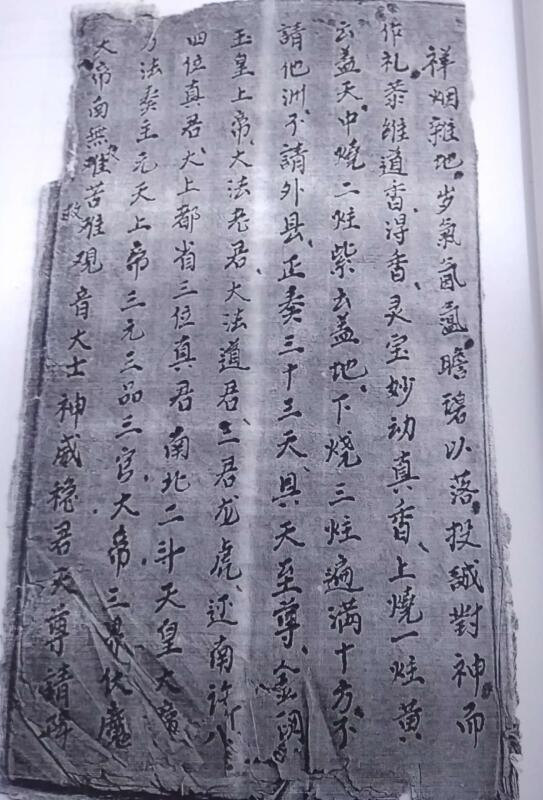 祥烟雜地、岁氣氤氲、瞻碧以落、投誠對神、而
作礼、恭维道香、浔香、灵宝妙动真香、上燒一炷黄
云盖天、中燒二炷紫云盖地、下烧三炷遍满十方、不
請他洲、不請外县、正奏三十三天、具天至尊、金阙
玉皇上帝、大法老君、大法道君、三君龙虎、
四位真君、大上都省三位真君 南北二斗天皇大帝
万法奏主元天上帝 三元三品三官、大帝、三界伏魔
大帝 南無 救苦难 观音大士 神威 君天尊 請降